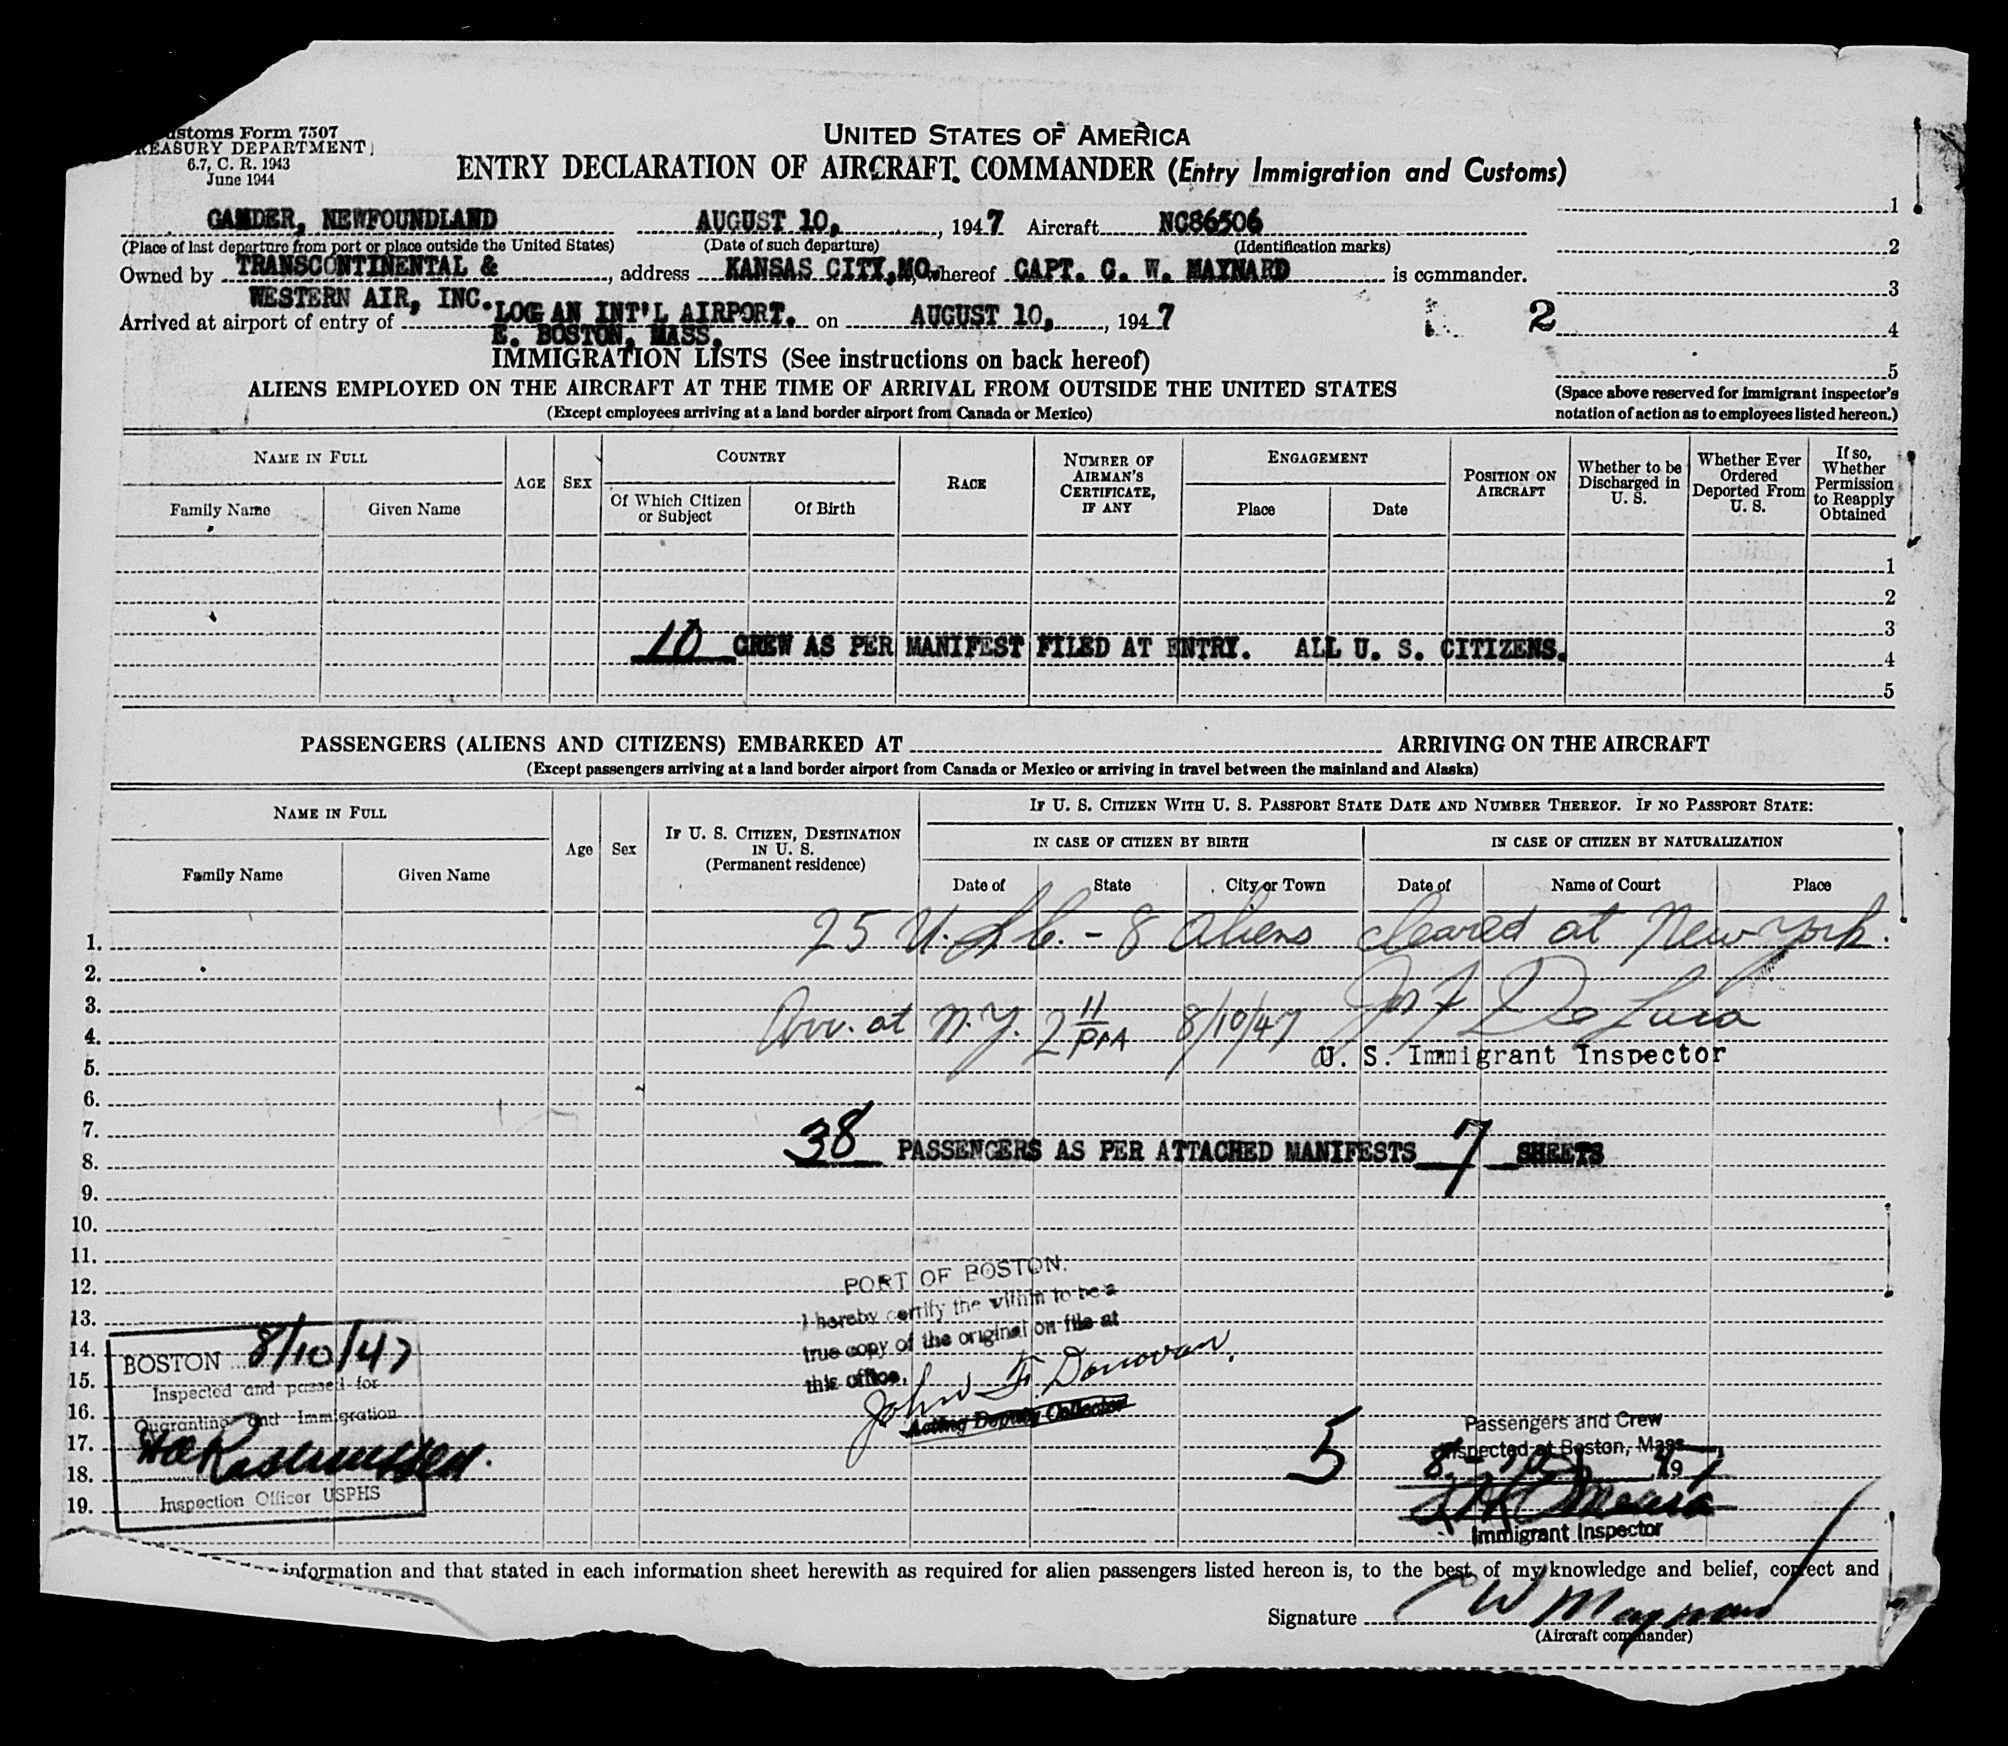 ustoms Form 7507
REASURY DEPARTMENT
6.7, C. R. 1943
June 1944
UNITED STATES OF AMERICA
ENTRY DECLARATION OF AIRCRAFT COMMANDER (Entry Immigration and Customs)
GANDER, NEWFOUNDLAND AUGUST 10, , 1947 Aircraft NC86506
(Place of last departure from port or place outside the United States) (Date of such departure) (Identification marks)
Owned by TRANSCONTINENTAL & , address KANSAS CITY, MO. whereof CAPT. C. W. MAYNARD is commander.
WESTERN AIR, INC.
Arrived at airport of entry of LOGAN INT'L AIRPORT. on AUGUST 10, , 1947
E. BOSTON, MASS.
1
2
3
2 4
5
(Space above reserved for immigrant inspector's
notation of action as to employees listed hereon.)
IMMIGRATION LISTS (See instructions on back hereof)
ALIENS EMPLOYED ON THE AIRCRAFT AT THE TIME OF ARRIVAL FROM OUTSIDE THE UNITED STATES
(Except employees arriving at a land border airport from Canada or Mexico)
NAME IN FULL
Family Name Given Name
AGE SEX
COUNTRY
Of Which Citizen
or Subject
Of Birth
RACE
NUMBER OF
AIRMAN'S
CERTIFICATE,
IF ANY
ENGAGEMENT
Place Date
POSITION ON
AIRCRAFT
Whether to be
Discharged in
U. S.
Whether Ever
Ordered
Deported From
U. S.
If so,
Whether
Permission
to Reapply
Obtained
1
2
3
10 CREW AS PER MANIFEST FILED AT ENTRY. ALL U. S. CITIZENS.
4
5
PASSENGERS (ALIENS AND CITIZENS) EMBARKED AT ARRIVING ON THE AIRCRAFT
(Except passengers arriving at a land border airport from Canada or Mexico or arriving in travel between the mainland and Alaska)
NAME IN FULL
Family Name Given Name
Age Sex
IF U. S. CITIZEN, DESTINATION
IN U. S.
(Permanent residence)
IF U. S. CITIZEN WITH U. S. PASSPORT STATE DATE AND NUMBER THEREOF. IF NO PASSPORT STATE:
IN CASE OF CITIZEN BY BIRTH IN CASE OF CITIZEN BY NATURALIZATION
Date of State City or Town Date of Name of Court Place
1. 25 U.S.C. - 8 Aliens cleared at New York.
2.
3. Jos F De Luca
4. Arr. at N.Y. 2 11 PM 8/10/47
5. U. S. Immigrant Inspector
6.
7.
8. 38 PASSENGERS AS PER ATTACHED MANIFESTS 7 SHEETS
9.
10.
11.
12.
13.
14.
15.
16.
17.
18.
19.
PORT OF BOSTON.
I hereby certify the within to be a
true copy of the original on file at
this office.
John F. Donovan.
Acting Deputy Collector
BOSTON 8/10/47
Inspected and passed for
Quarantine and Immigration
Rasmussen.
Inspection Officer USPHS
5
Passengers and Crew
Inspected at Boston, Mass
8 - 10 , 1947
Immigrant Inspector
information and that stated in each information sheet herewith as required for alien passengers listed hereon is, to the best of my knowledge and belief, correct and
Signature C W Maynard
(Aircraft commander)